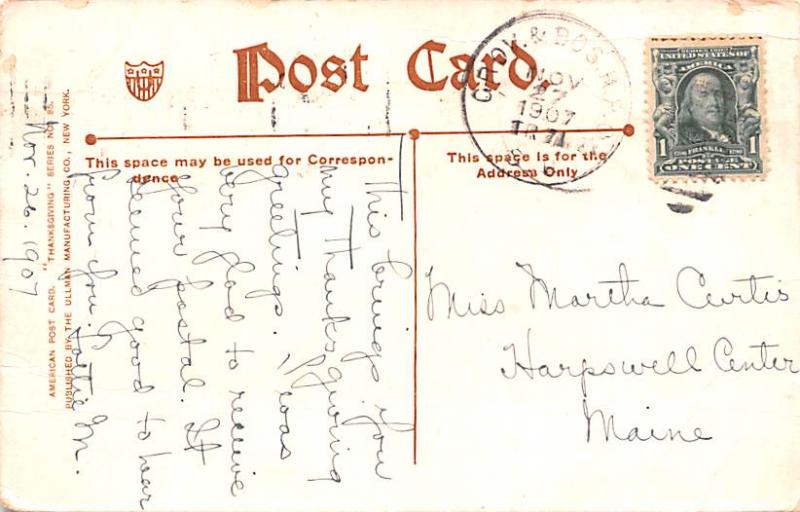 Post Card.
This space may be used for Correspon-
dence
This space is for the
Address Only
NOV
27
1907
SERIES 1902
UNITED STATES OF
AMERICA
FRANKLIN
1 1
POSTAGE
ONE CENT
AMERICAN POST CARD. "THANKSGIVING" SERIES NO. 85.
PUBLISHED BY THE ULLMAN MANUFACTURING CO., NEW YORK.
Nov. 26. 1907
This brings you
my Thanksgiving
greetings. I was
very glad to receive
your postal. It
seemed good to hear
from you. Lottie M.
Miss Martha Curtis
Harpswell Center
Maine